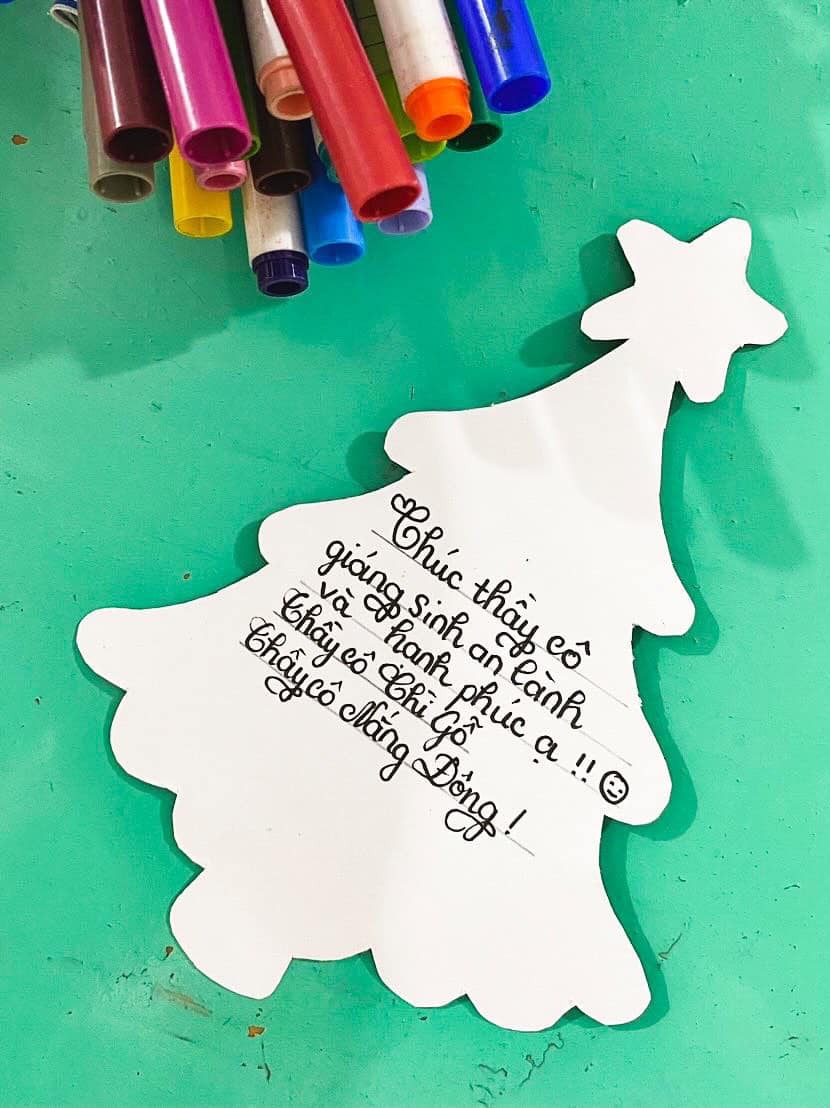 Chúc thầy cô
giáng sinh an lành
và hạnh phúc ạ !!
Thầy cô Chì Gỗ
Thầy cô Nắng Đông !